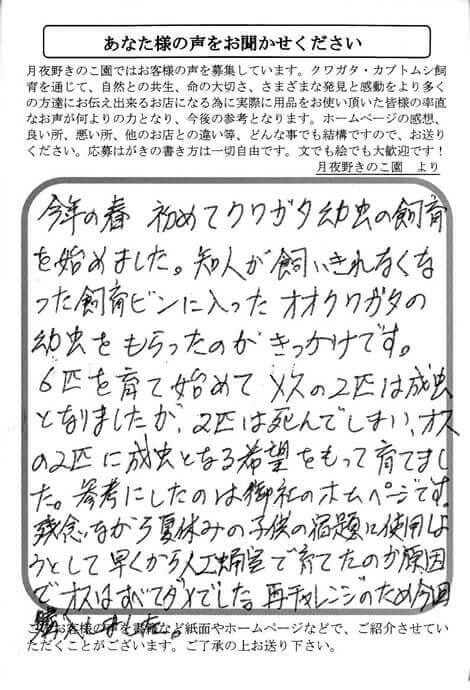 あなた様の声をお聞かせください
月夜野きのこ園ではお客様の声を募集しています。クワガタ・カブトムシ飼
育を通じて、自然との共生、命の大切さ、さまざまな発見と感動をより多く
の方達にお伝え出来るお店になる為に実際に用品をお使い頂いた皆様の率直
なお声が何よりの力となり、今後の参考となります。ホームページの感想、
良い所、悪い所、他のお店との違い等、どんな事でも結構ですので、お送り
ください。応募はがきの書き方は一切自由です。文でも絵でも大歓迎です！
月夜野きのこ園　より
今年の春　初めてクワガタ幼虫の飼育
を始めました。知人が飼いきれなくな
った飼育ビンに入ったオオクワガタの
幼虫をもらったのがきっかけです。
6匹を育て始めて メスの2匹は成虫
となりましたが、2匹は死んでしまい、オス
の2匹に成虫となる希望をもって育てまし
た。参考にしたのは御社のホームページです。
残念ながら夏休みの子供の宿題に使用しよ
うとして早くから人工蛹室で育てたのが原因
でオスはすべてダメでした。再チャレンジのため今回
購入しました。
お客様の声を書籍など紙面やホームページなどで、ご紹介させてい
ただくことがございます。ご了承の上お送り下さい。